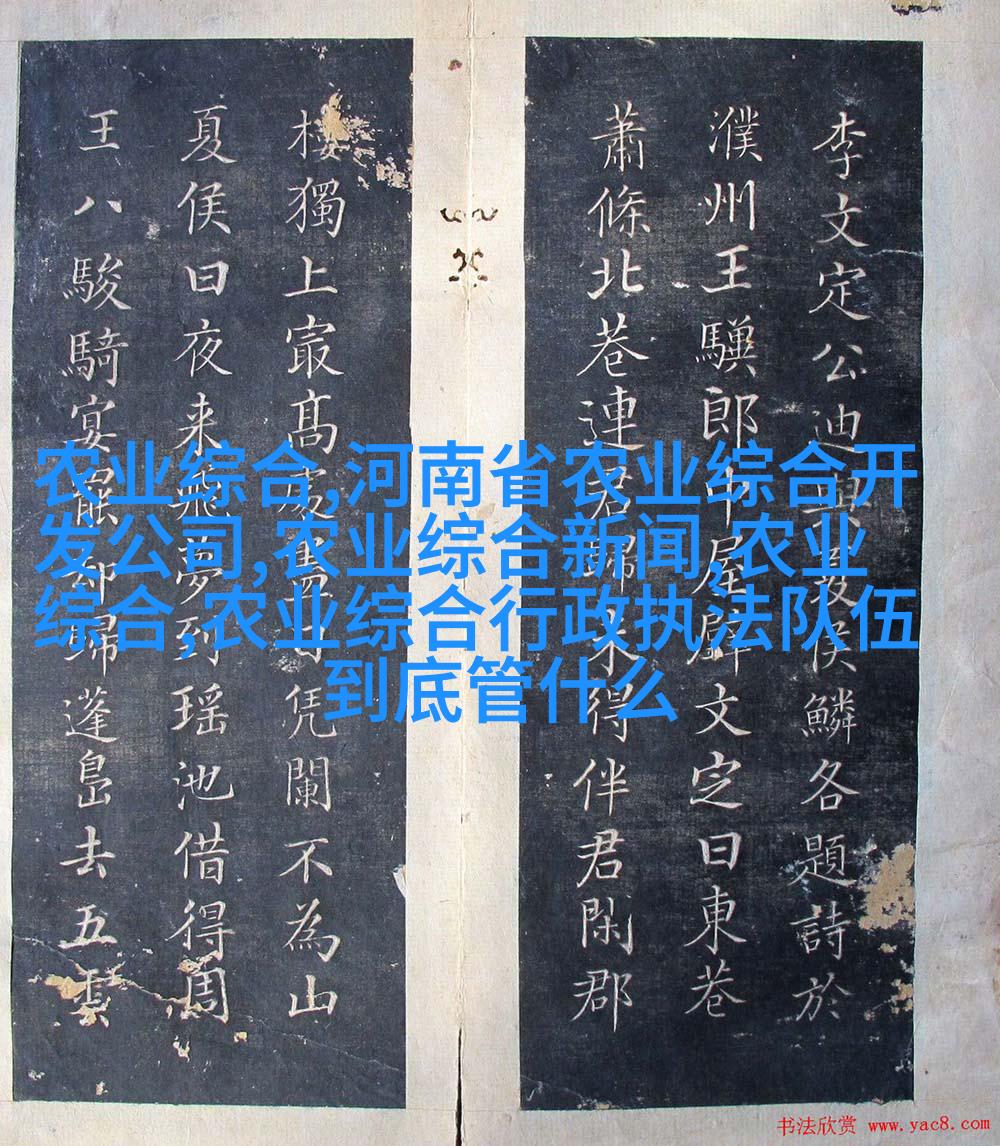 李文定公迪與夏侯鱗各題詩於
濮州王驥郎中屋壁文定曰東巷
蕭條北巷連君歸未得伴君閑郡
樓獨上寂高處盡日凭闌不為山
夏侯曰夜来飛夢到瑶池借得周
王八駿騎宴罷却歸蓬島去五雲
农业综合,河南省农业综合开
发公司,农业综合新闻,农业
综合,农业综合行政执法队伍
到底管什么
书法欣赏 www.yac8.com